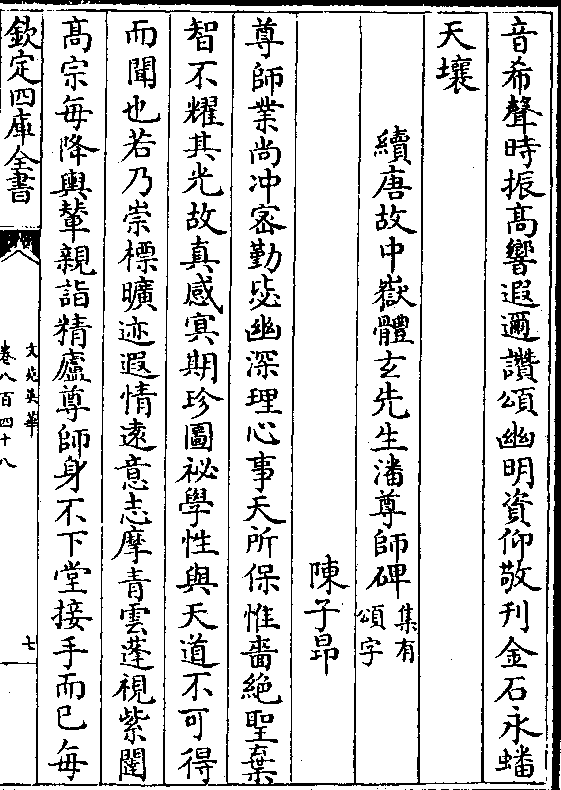 音希聲時振髙響遐邇讚頌幽明資仰敬刋金石永蟠
天壤
續唐故中嶽體玄先生潘尊師碑集有頌字
陳子昻
尊師業尚冲宻勤毖幽深理心事天所保惟嗇絶聖棄
智不耀其光故真感寘期珍圖祕學性與天道不可得
而聞也若乃崇標曠迹遐情逺意志摩青雲蓬視紫闥
髙宗每降輿輦親詣精廬尊師身不下堂接手而已每
欽定四庫全書
文苑英華
卷八百四十八
七